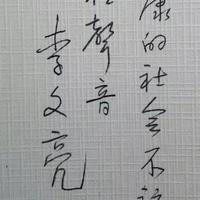 康的社会不
聲音
李文亮